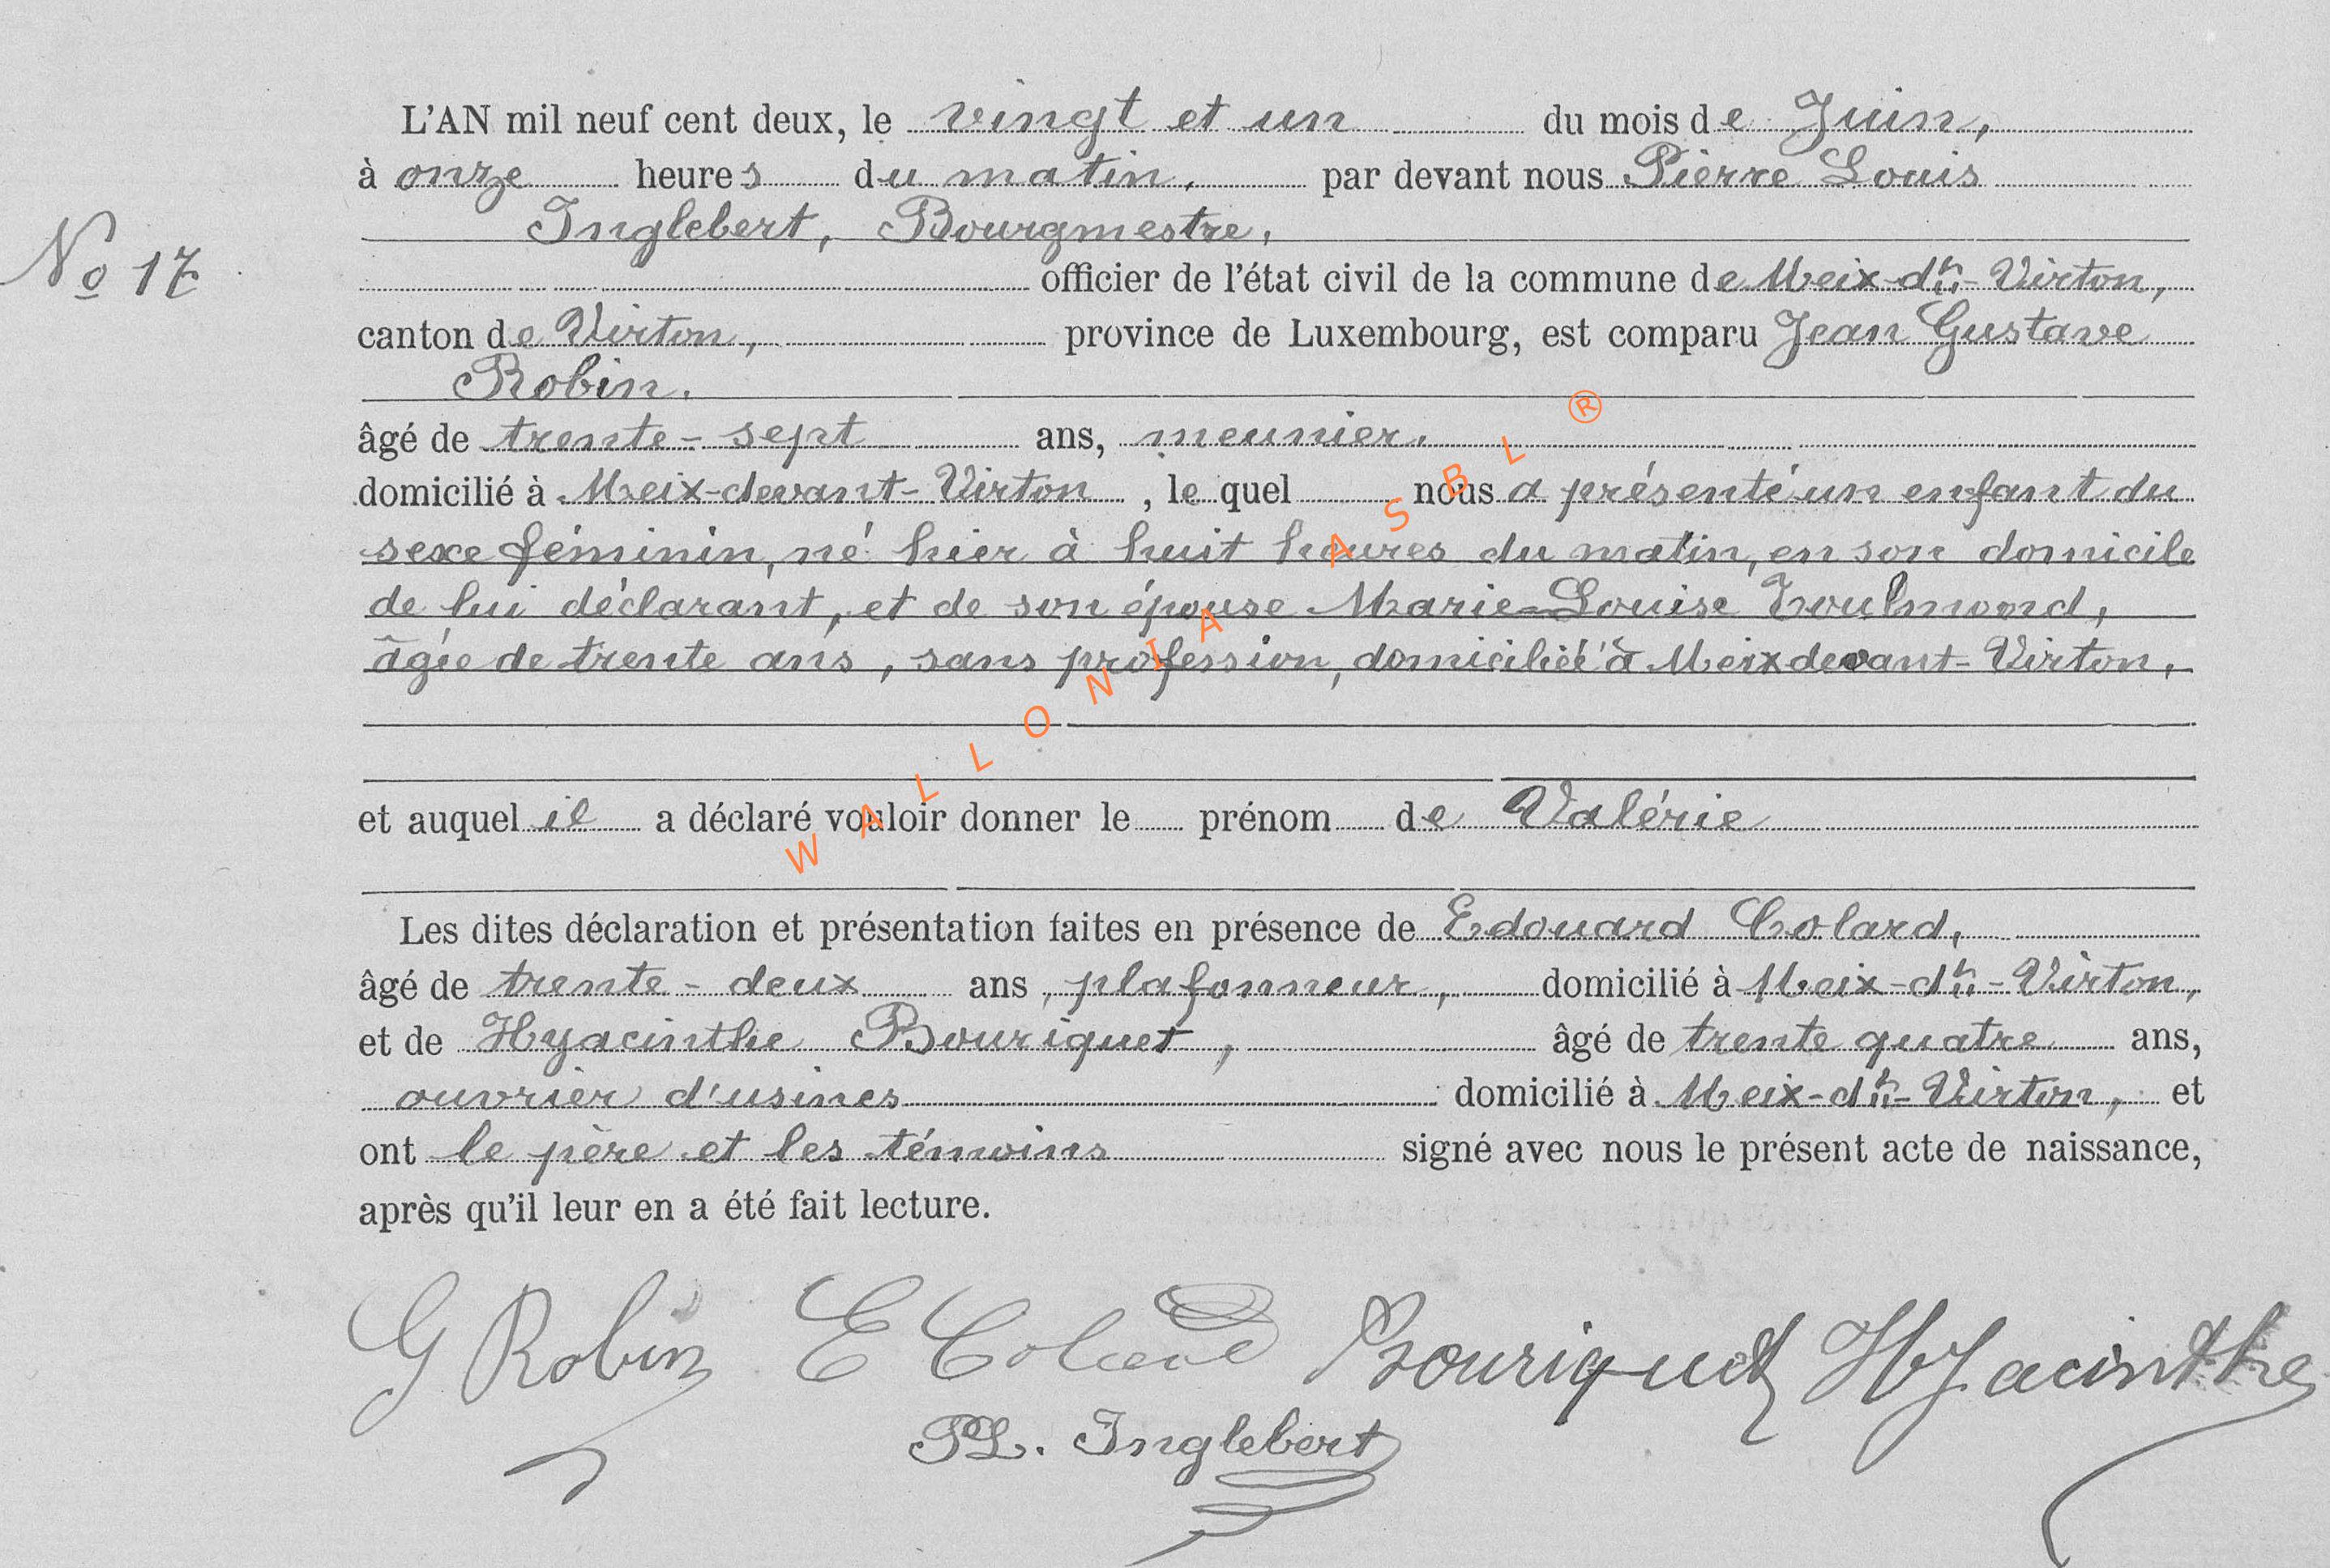 L'AN mil neuf cent deux, le vingt et un du mois de Juin,
à onze heures du matin, par devant nous Pierre Louis
Inglebert, Bourgmestre,
No 17
officier de l'état civil de la commune de Meix-dt-Virton,
canton de Virton, province de Luxembourg, est comparu Jean Gustave
Robin.
âgé de trente-sept ans, meunier,
domicilié à Meix-devant-Virton, le quel nous a présenté un enfant du
sexe féminin, né hier à huit heures du matin, en son domicile
de lui déclarant, et de son épouse Marie-Louise Houlmond,
âgée de trente ans, sans profession, domiciliée à Meix devant-Virton,
et auquel il a déclaré vouloir donner le prénom de Valérie
Les dites déclaration et présentation faites en présence de Edouard Colard,
âgé de trente-deux ans, plafonneur, domicilié à Meix-dt-Virton,
et de Hyacinthe Bouriquet, âgé de trente quatre ans,
ouvrier d'usines domicilié à Meix-dt-Virton, et
ont le père et les témoins signé avec nous le présent acte de naissance,
après qu'il leur en a été fait lecture.
G Robin E Colard Bouriquet Hyacinthe
PL. Inglebert
WALLONIA ASBL ®